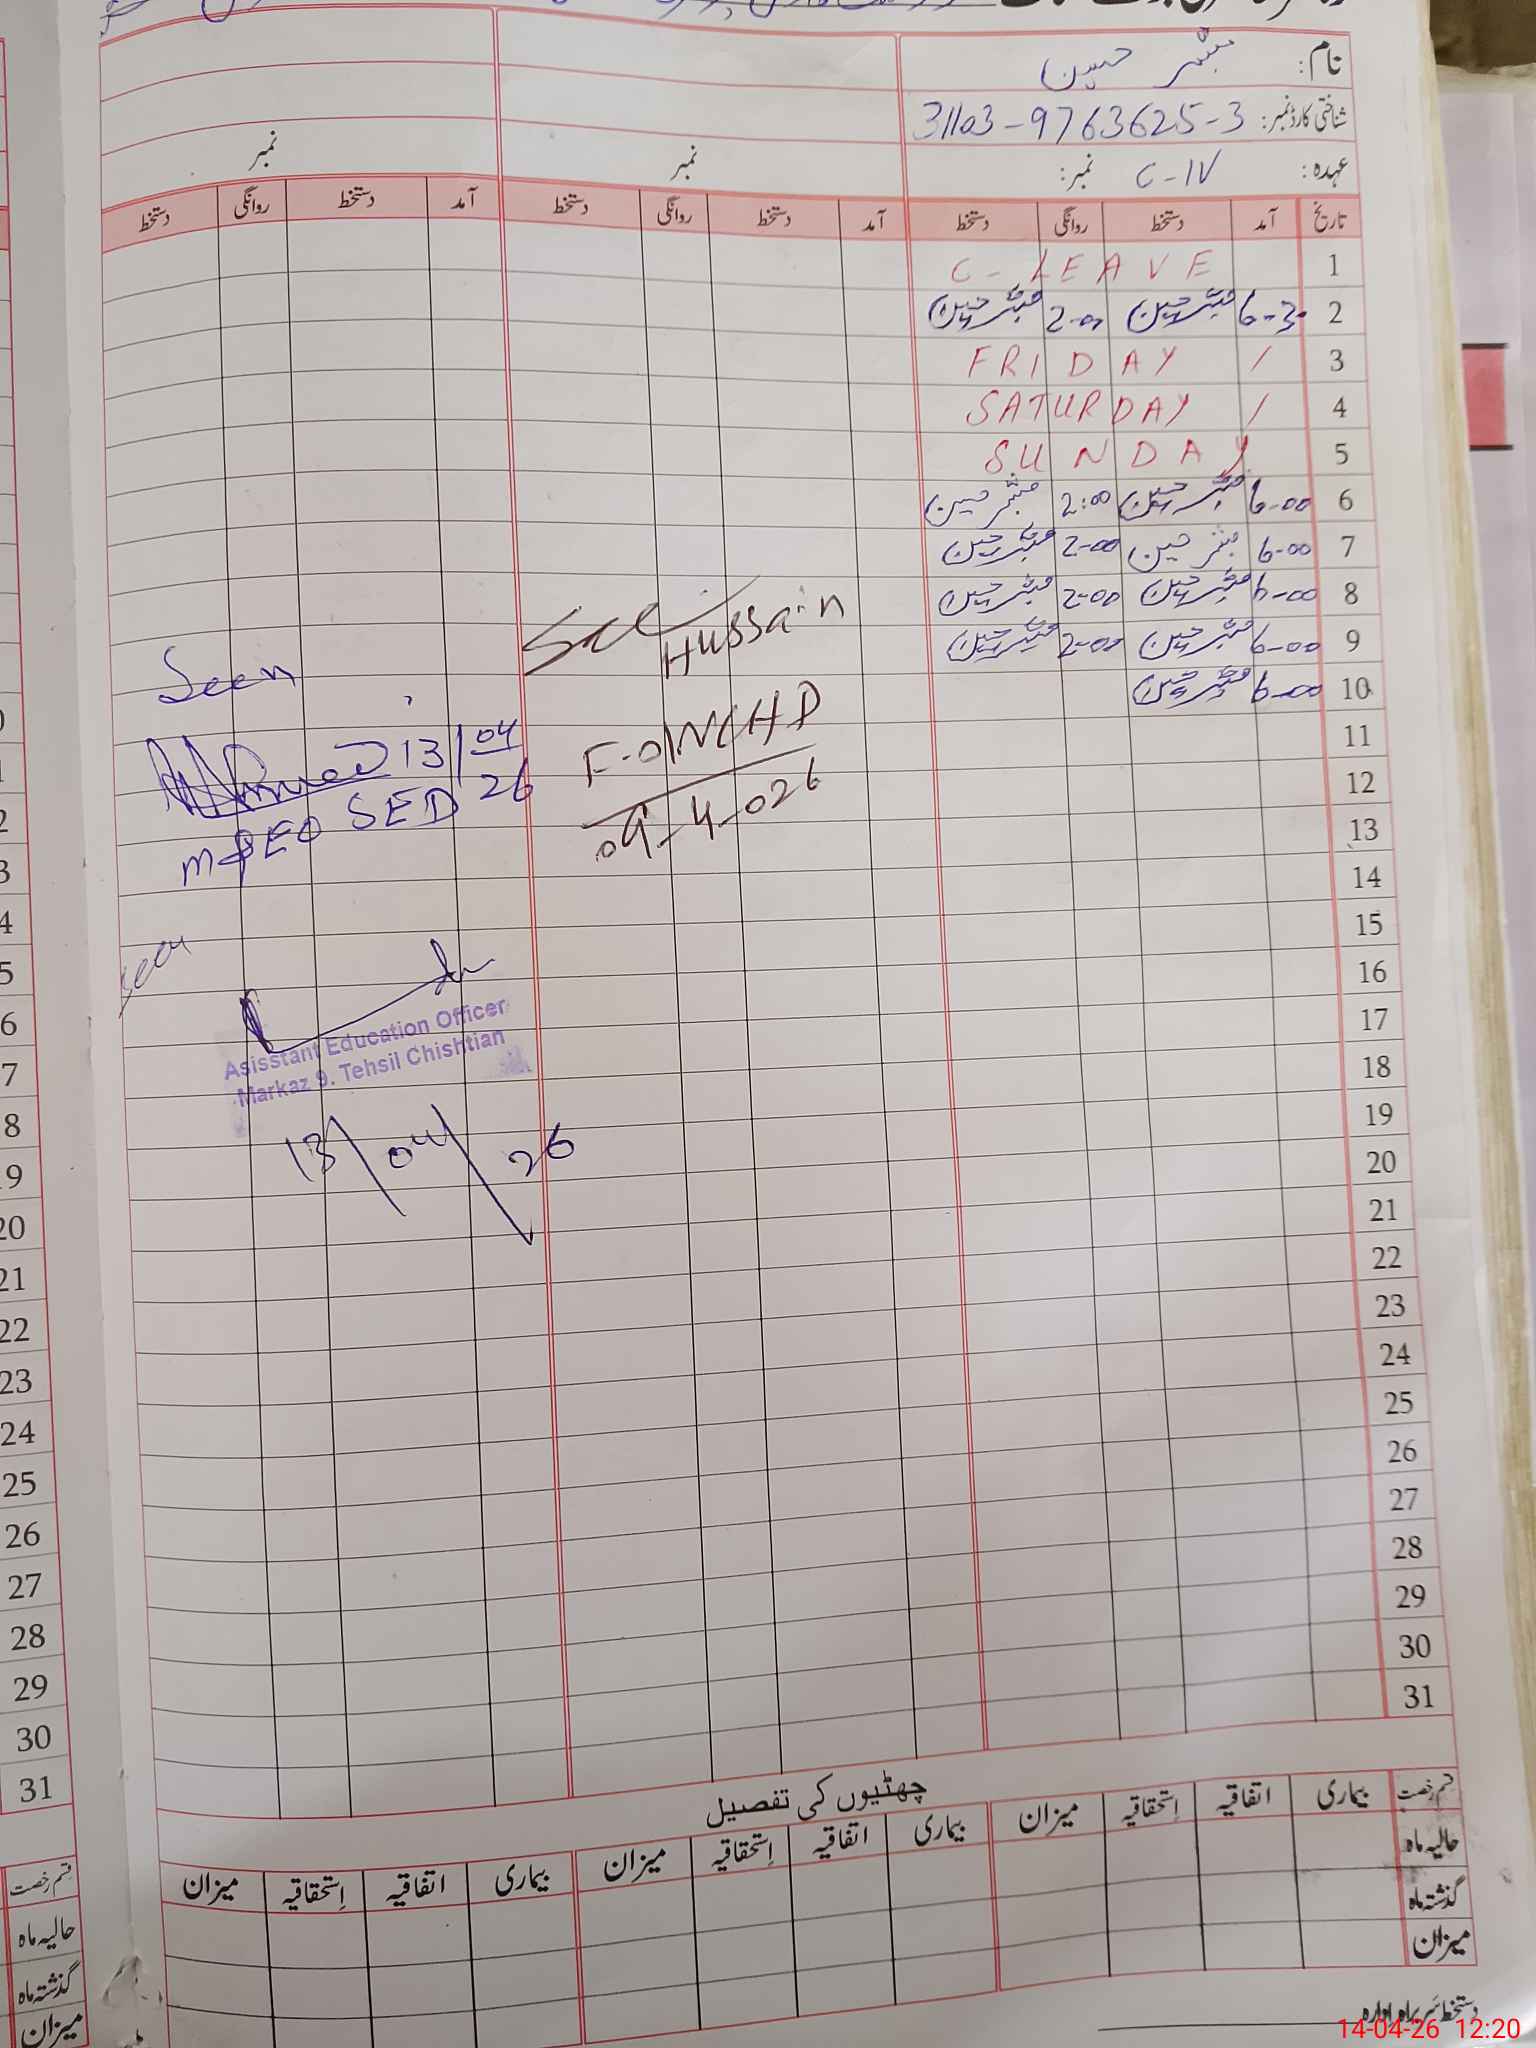 نام: مبشر حسین
شناختی کارڈ نمبر: 31103-9763625-3
عہدہ: C-IV نمبر:
نمبر
نمبر
تاریخ آمد دستخط روانگی دستخط آمد دستخط روانگی دستخط آمد دستخط روانگی دستخط
1 C-LEAVE
2 6-3 مبشر حسین 2-00 مبشر حسین
3 FRIDAY /
4 SATURDAY /
5 SUNDAY
6 6-00 مبشر حسین 2:00 مبشر حسین
7 6-00 مبشر حسین 2-00 مبشر حسین
8 6-00 مبشر حسین 2-00 مبشر حسین
9 6-00 مبشر حسین 2-00 مبشر حسین
10 6-00 مبشر حسین
11
12
13
14
15
16
17
18
19
20
21
22
23
24
25
26
27
28
29
30
31
Hussain
09-4-026
Seen
Ahmed 13/04
26
SED
Seen
Asisstant Education Officer
Markaz 9. Tehsil Chishtian
13/04/26
چھٹیوں کی تفصیل
قسم رخصت بیماری اتفاقیہ اِستحقاقیہ میزان بیماری اتفاقیہ اِستحقاقیہ میزان بیماری اتفاقیہ اِستحقاقیہ میزان
حالیہ ماہ
گذشتہ ماہ
میزان
دستخط سربراہ ادارہ
19
20
21
22
23
24
25
26
27
28
29
30
31
قسم رخصت
حالیہ ماہ
گذشتہ ماہ
میزان
14-04-26 12:20